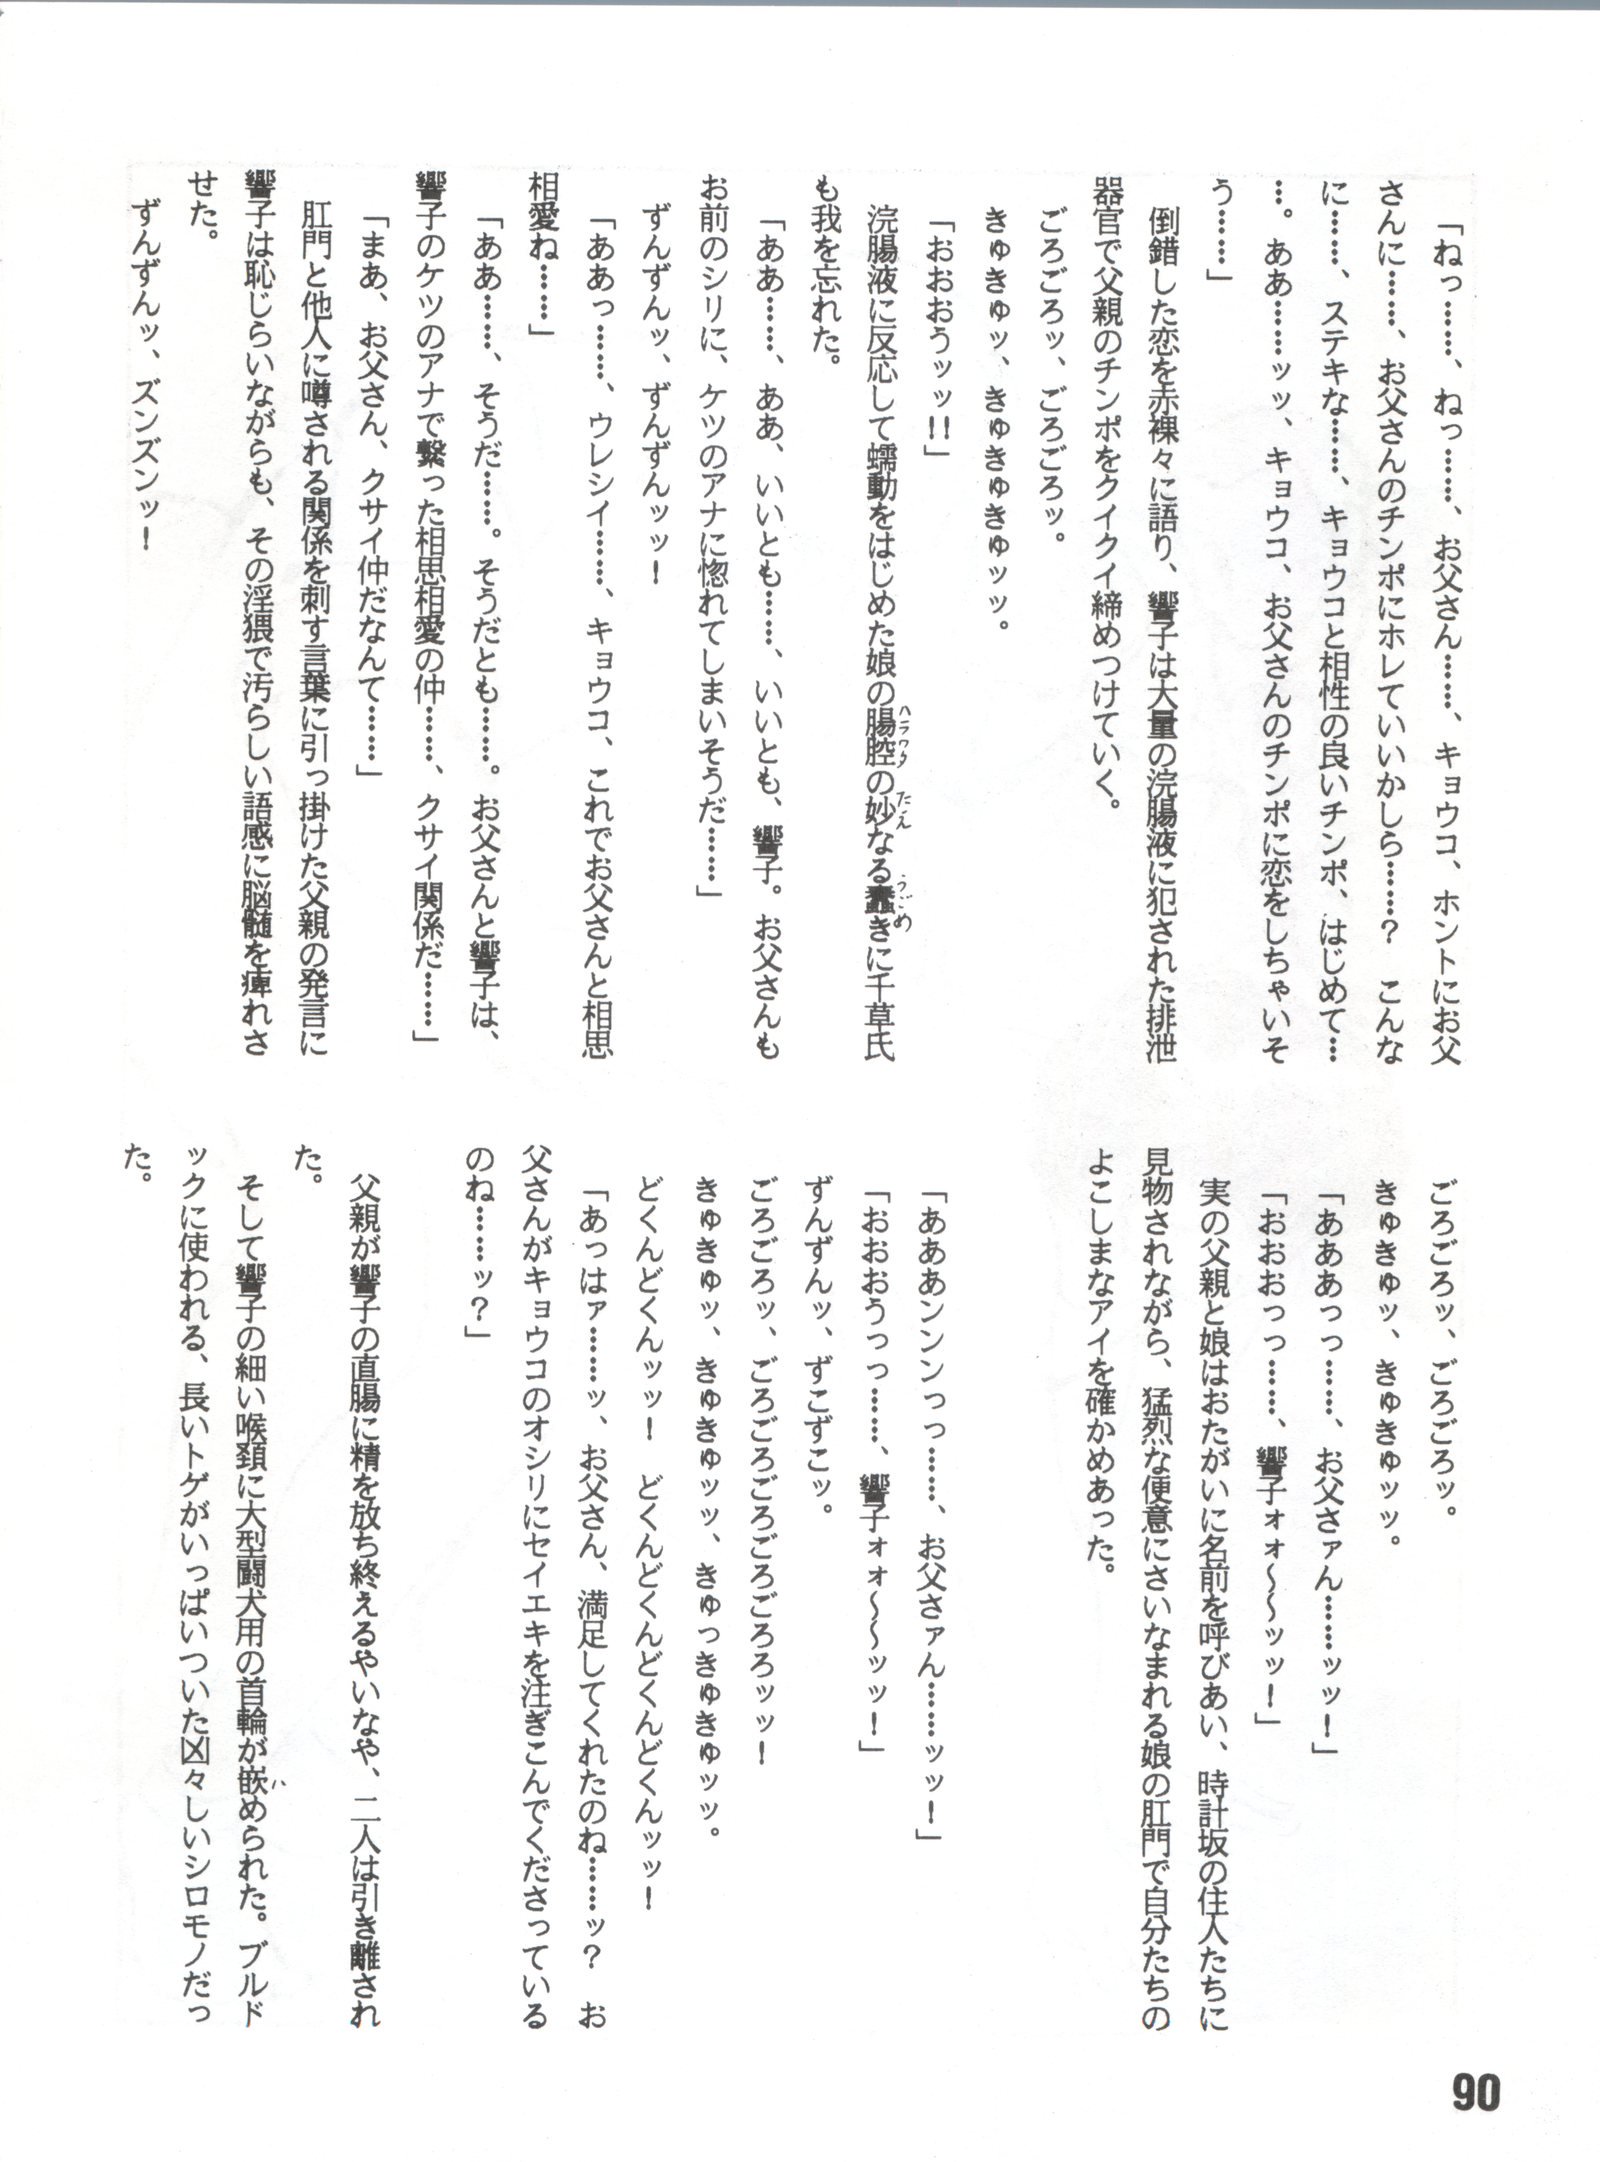 「ねっ……、ねっ……、お父さん……、キョウコ、ホントにお父
さんに……、お父さんのチンポにホレていいかしら……？　こんな
に……、ステキな……、キョウコと相性の良いチンポ、はじめて…
…。ああ……ッッ、キョウコ、お父さんのチンポに恋をしちゃいそ
う……」
倒錯した恋を赤裸々に語り、響子は大量の浣腸液に犯された排泄
器官で父親のチンポをクイクイ締めつけていく。
ごろごろッ、ごろごろッ。
きゅきゅッ、きゅきゅきゅッッ。
「おおおうッッ!!」
浣腸液に反応して蠕動をはじめた娘の腸腔の妙なる蠢きに千草氏
も我を忘れた。
「ああ……、ああ、いいとも……、いいとも、響子。お父さんも
お前のシリに、ケツのアナに惚れてしまいそうだ……」
ずんずんッ、ずんずんッッ！
「ああっ……、ウレシイ……、キョウコ、これでお父さんと相思
相愛ね……」
「ああ……、そうだ……。そうだとも……。お父さんと響子は、
響子のケツのアナで繋った相思相愛の仲……、クサイ関係だ……」
「まあ、お父さん、クサイ仲だなんて……」
肛門と他人に噂される関係を刺す言葉に引っ掛けた父親の発言に
響子は恥じらいながらも、その淫猥で汚らしい語感に脳髄を痺れさ
せた。
ずんずんッ、ズンズンッ！
ごろごろッ、ごろごろッ。
きゅきゅッ、きゅきゅッッ。
「あああっっ……、お父さァん……ッッ！」
「おおおっっ……、響子ォォ～～ッッ！」
実の父親と娘はおたがいに名前を呼びあい、時計坂の住人たちに
見物されながら、猛烈な便意にさいなまれる娘の肛門で自分たちの
よこしまなアイを確かめあった。
「あああンンンっっ……、お父さァん……ッッ！」
「おおおうっっ……、響子ォォ～～ッッ！」
ずんずんッ、ずこずこッ。
ごろごろッ、ごろごろごろごろごろろッッ！
きゅきゅッ、きゅきゅッッ、きゅっきゅきゅッッ。
どくんどくんッッ！　どくんどくんどくんどくんッッ！
「あっはァ……ッ、お父さん、満足してくれたのね……ッ？　お
父さんがキョウコのオシリにセイエキを注ぎこんでくださっている
のね……ッ？」
父親が響子の直腸に精を放ち終えるやいなや、二人は引き離され
た。
そして響子の細い喉頚に大型闘犬用の首輪が嵌められた。ブルド
ックに使われる、長いトゲがいっぱいついた凶々しいシロモノだっ
た。
90